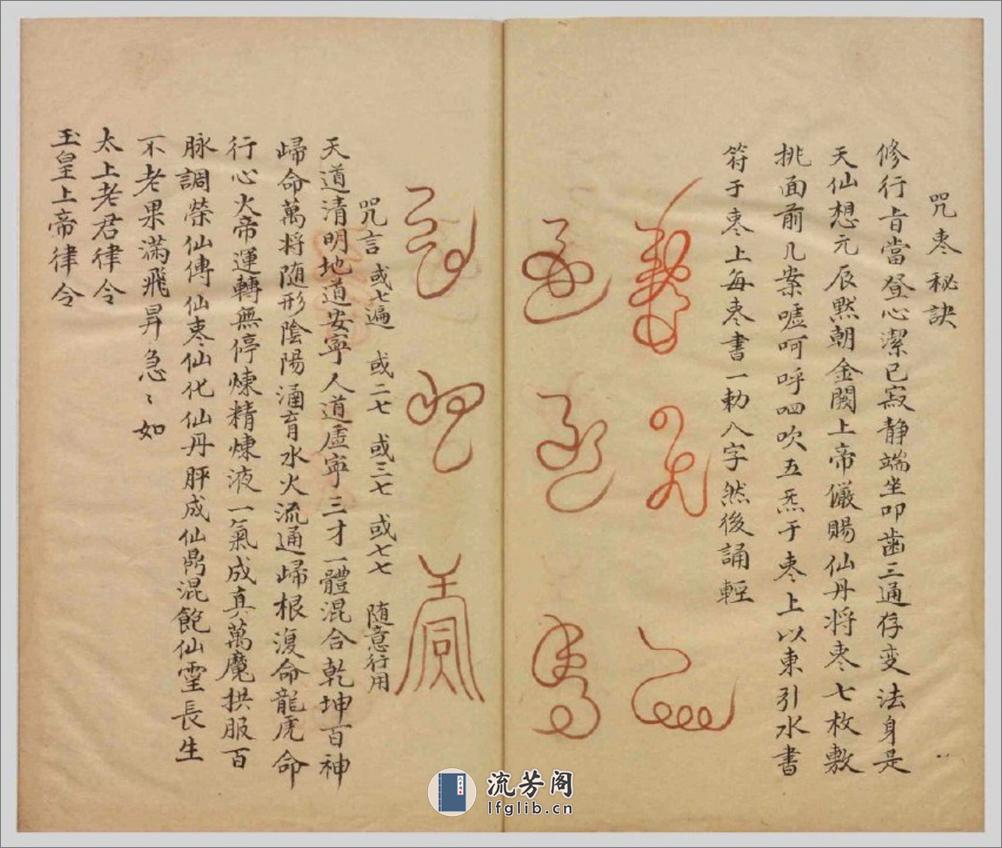 咒枣秘訣
修行旨當登心潔已寂静端坐叩齒三通存变法身是
天仙想元辰黙朝金闕上帝儀賜仙丹将枣七枚敷
挑面前几案嘘呵呼呬吹五炁于枣上以東引水書
符于枣上每枣書一勅八字然後誦輕
咒言 或七遍 或二七 或三七 或七七 随意行用
天道清明地道安寧人道虛寧三才一體混合乾坤百神
歸命萬将随形陰陽涵育水火流通歸根復命龍虎命
行心火帝運轉無停煉精煉液一氣成真萬魔拱服百
脉調榮仙傳仙枣仙化仙丹胖成仙鼎混飽仙靈長生
不老果滿飛昇急〻如
太上老君律令
玉皇上帝律令
流芳阁
lfglib.cn